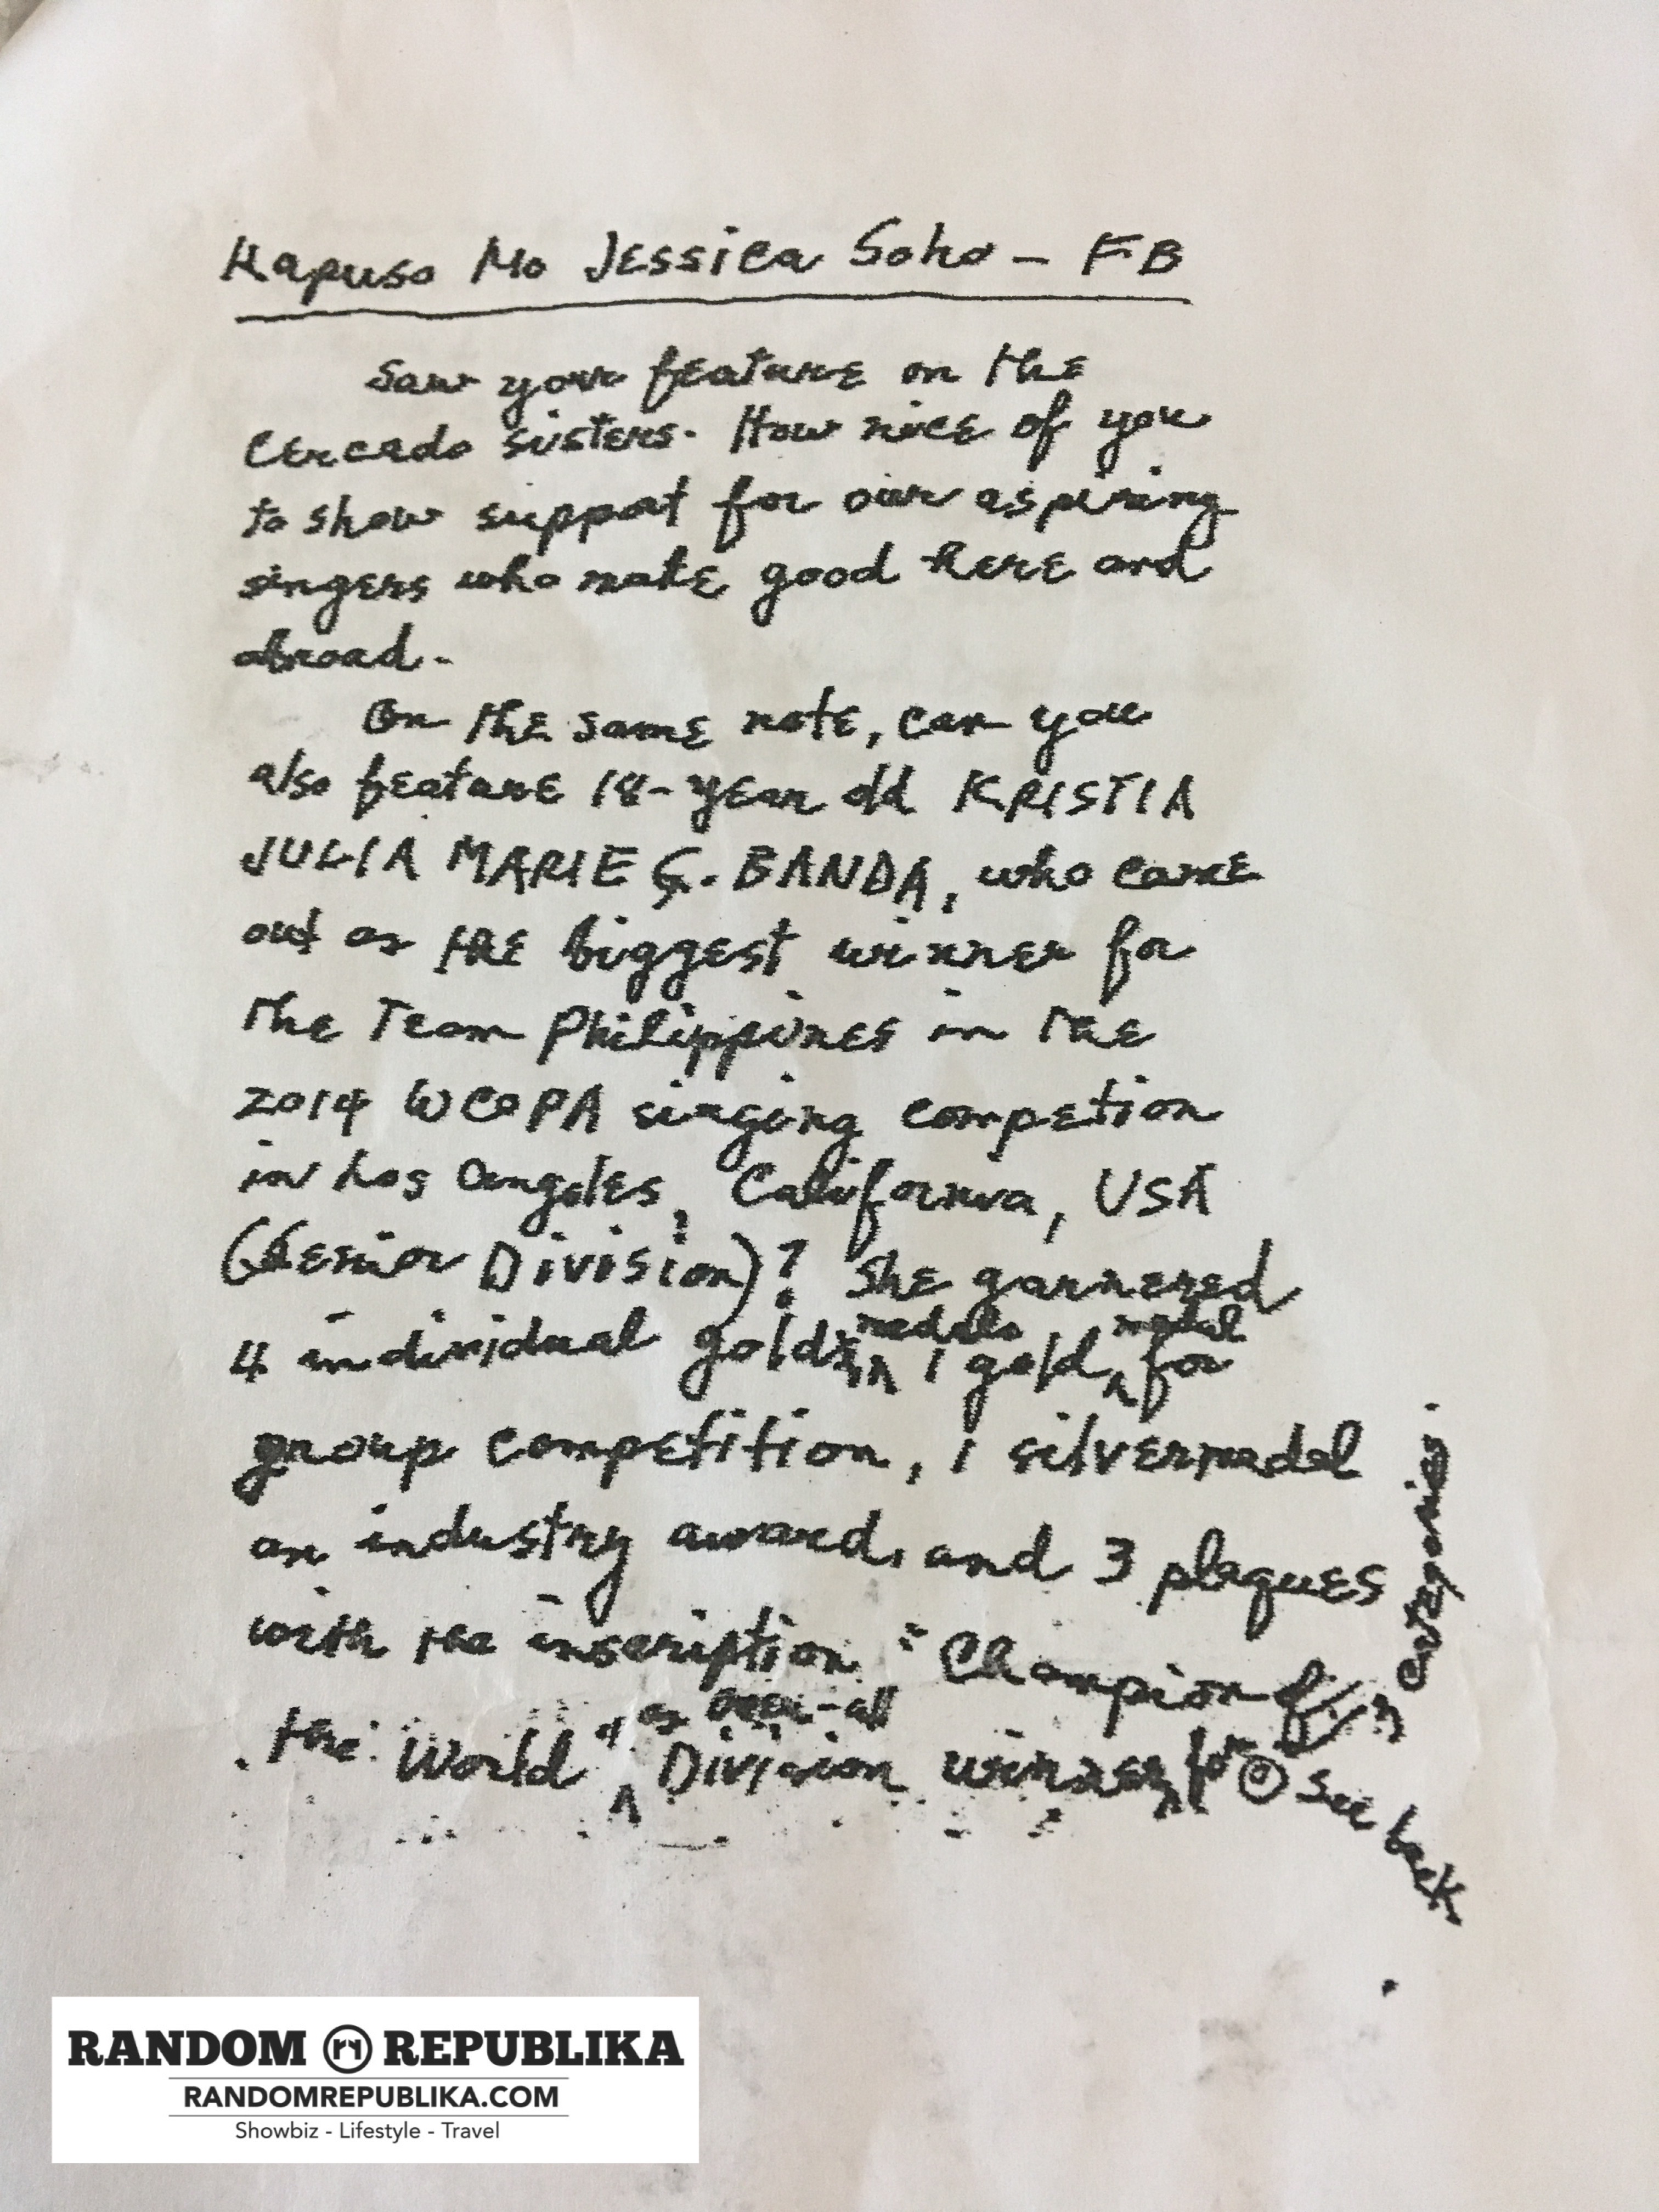 Kapuso Mo Jessica Soho - FB
Saw your feature on the
Cercado sisters. How nice of you
to show support for our aspiring
singers who make good here and
abroad.
On the same note, can you
also feature 18-year old KRISTIA
JULIA MARIE G. BANDA, who came
out as the biggest winner for
the Team Philippines in the
2014 WCOPA singing competion
in Los Angeles, California, USA
(Senior Division)? She garnered
medals medal
4 individual gold 1 gold for
group competition, 1 silver medal
an industry award, and 3 plaques
with the inscription "Champion of
as over-all
the World" Division winner for
3 categories.
see back
RANDOM REPUBLIKA
RANDOMREPUBLIKA.COM
Showbiz - Lifestyle - Travel